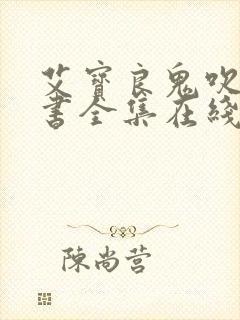 艾寳良鬼吹
書全集在綫
陳尚营